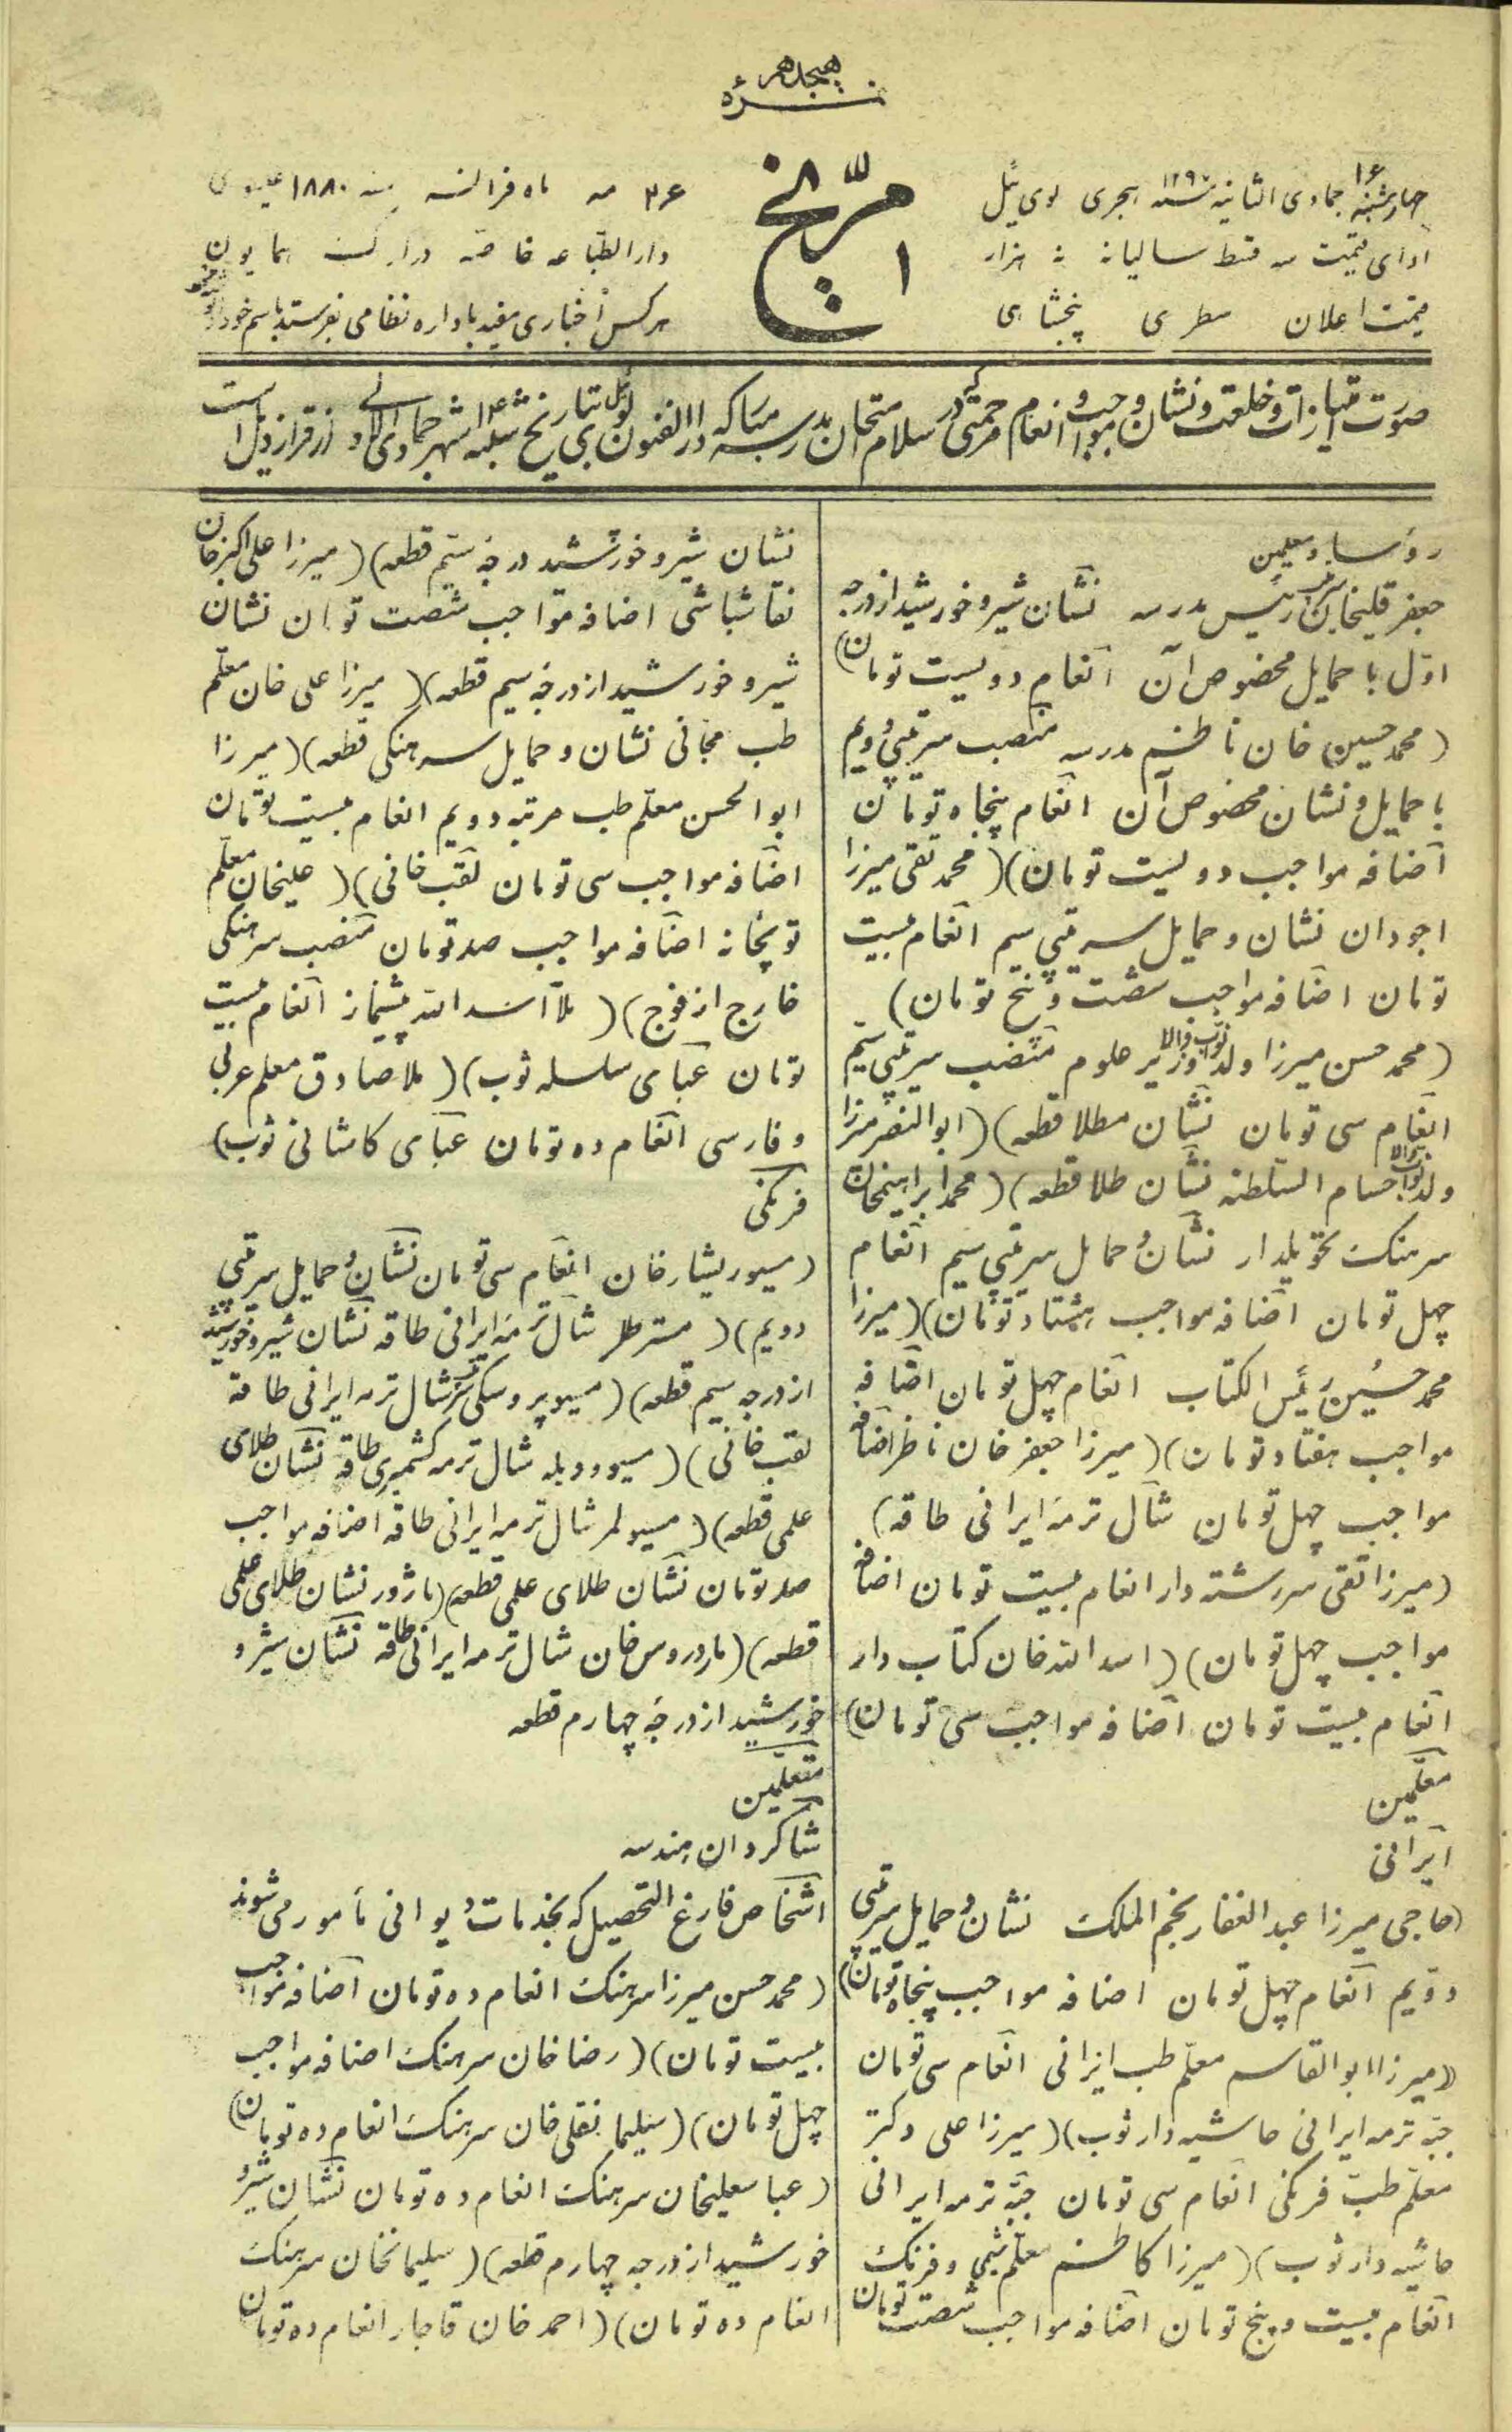 نمرهٔ هیجدهم
مریخ
۱
چهارشنبه ۱۶ جمادی الثانیه سنه ۱۲۹۷ هجری لوی ئیل
ادای قیمت سه قسط سالیانه نه هزار
قیمت اعلان سطری پنجشاهی
۲۶ مه ماه فرانسه سنه ۱۸۸۰ عیسوی
دارالطباعه خاصه در ارک همایون
هرکس اخباری مفید باداره نظامی بفرستد باسم خود او
صورت امتیازات و خلعت و نشان و مواجب و انعام مرحمتی که در سلام امتحان مدرسه مبارکه دارالفنون لوی ئیل بتاریخ شنبه ۱۴ شهر جمادی الاولی داده از قرار ذیل است
رؤسا و معلمین
جعفر قلیخان رئیس مدرسه نشان شیر و خورشید از درجه
اول با حمایل مخصوص آن انعام دویست تومان)
(محمد حسین خان ناظم مدرسه منصب سرتیپی دویم
با حمایل و نشان مخصوص آن انعام پنجاه تومان
اضافه مواجب دویست تومان)(محمد تقی میرزا
اجودان نشان و حمایل سرتیپی سیم انعام بیست
تومان اضافه مواجب شصت و پنج تومان)
(محمد حسن میرزا ولد نواب والا وزیر علوم منصب سرتیپی سیم
انعام سی تومان نشان مطلا قطعه)(ابوالنصر میرزا
ولد نواب والا حسام السلطنه نشان طلا قطعه)(محمد ابراهیمخان
سرهنک تحویلدار نشان و حمایل سرتیپی سیم انعام
چهل تومان اضافه مواجب هشتاد تومان)(میرزا
محمد حسین رئیس الکتاب انعام چهل تومان اضافه
مواجب هفتاد تومان)(میرزا جعفر خان ناظر اضافه
مواجب چهل تومان شال ترمه ایرانی طاقه)
(میرزا تقی سررشته دار انعام بیست تومان اضافه
مواجب چهل تومان)(اسد الله خان کتاب دار
انعام بیست تومان اضافه مواجب سی تومان)
معلمین
ایرانی
(حاجی میرزا عبد الغفار نجم الملک نشان و حمایل سرتیپی
دویم انعام چهل تومان اضافه مواجب پنجاه تومان)
(میرزا ابوالقاسم معلم طب ایرانی انعام سی تومان
جبه ترمه ایرانی حاشیه دار ثوب)(میرزا علی دکتر
معلم طب فرنکی انعام سی تومان جبه ترمه ایرانی
حاشیه دار ثوب)(میرزا کاظم معلم شیمی و فزیک
انعام بیست و پنج تومان اضافه مواجب شصت تومان
نشان شیر و خورشید درجه سیم قطعه)(میرزا علی اکبر خان
نقاشباشی اضافه مواجب شصت تومان نشان
شیر و خورشید از درجه سیم قطعه)(میرزا علی خان معلم
طب مجانی نشان و حمایل سرهنکی قطعه)(میرزا
ابوالحسن معلم طب مرتبه دویم انعام بیست تومان
اضافه مواجب سی تومان لقب خانی)(علیخان معلم
توپخانه اضافه مواجب صد تومان منصب سرهنکی
خارج از فوج)(ملا اسد الله پیشنماز انعام بیست
تومان عبای سلسله ثوب)(ملا صادق معلم عربی
و فارسی انعام ده تومان عبای کاشانی ثوب)
فرنکی
(مسیو ریشار خان انعام سی تومان نشان و حمایل سرتیپی
دویم)(مستر طلر شال ترمه ایرانی طاقه نشان شیر و خورشید
از درجه سیم قطعه)(مسیو پروسکی شال ترمه ایرانی طاقه
لقب خانی)(مسیو ودیله شال ترمه کشمیری طاقه نشان طلای
علمی قطعه)(مسیو لمر شال ترمه ایرانی طاقه اضافه مواجب
صد تومان نشان طلای علمی قطعه)(ماژور نشان طلای علمی
قطعه)(ماردروس خان شال ترمه ایرانی طاقه نشان شیر و
خورشید از درجه چهارم قطعه
متعلمین
شاکردان هندسه
اشخاص فارغ التحصیل که بخدمات دیوانی مأمور می شوند
(محمد حسن میرزا سرهنک انعام ده تومان اضافه مواجب
بیست تومان)(رضا خان سرهنک اضافه مواجب
چهل تومان)(سلیمانقلی خان سرهنک انعام ده تومان)
(عباسعلیخان سرهنک انعام ده تومان نشان شیر و
خورشید از درجه چهارم قطعه)(سلیمانخان سرهنک
انعام ده تومان)(احمد خان قاجار انعام ده تومان